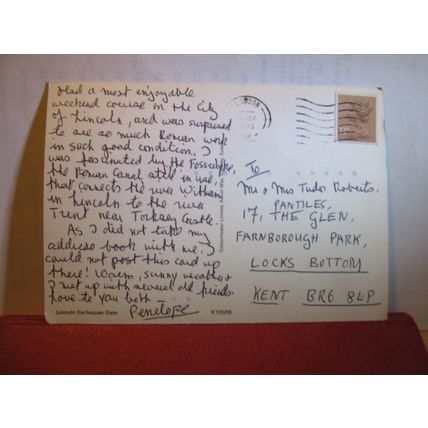 Had a most enjoyable
weekend course in the City
of Lincoln, and was surprised
to see so much Roman work
in such good condition. I
was fascinated by the Fossedyke,
the Roman Canal still in use,
that connects the river Witham
in Lincoln to the river
Trent near Torksey Castle.
As I did not take my
address book with me I
could not post this card up
there! Warm, sunny weather &
I met up with several old friends.
Love to you both
Penelope
Lincoln Exchequer Gate
R70508
LONDON
SEP
To
Mr & Mrs Tudor Roberts,
PANTILES,
17, THE GLEN,
FARNBOROUGH PARK,
LOCKS BOTTOM
KENT BR6 8LP